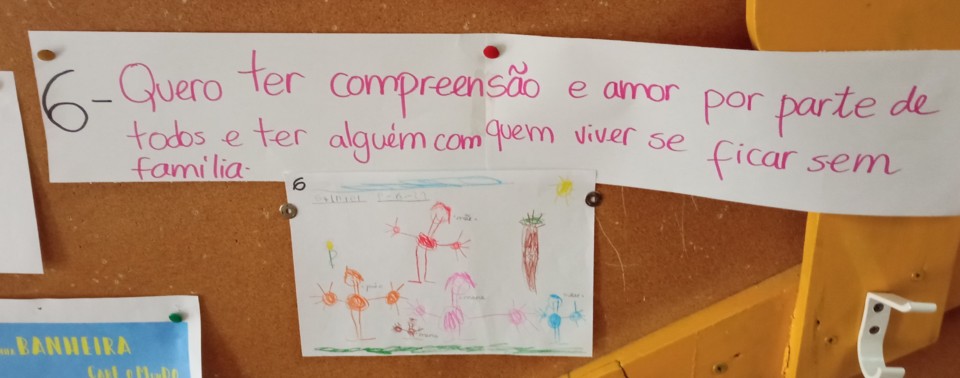 6- Quero ter compreensão e amor por parte de
todos e ter alguém com quem viver se ficar sem
família.
6
BANHEIRA